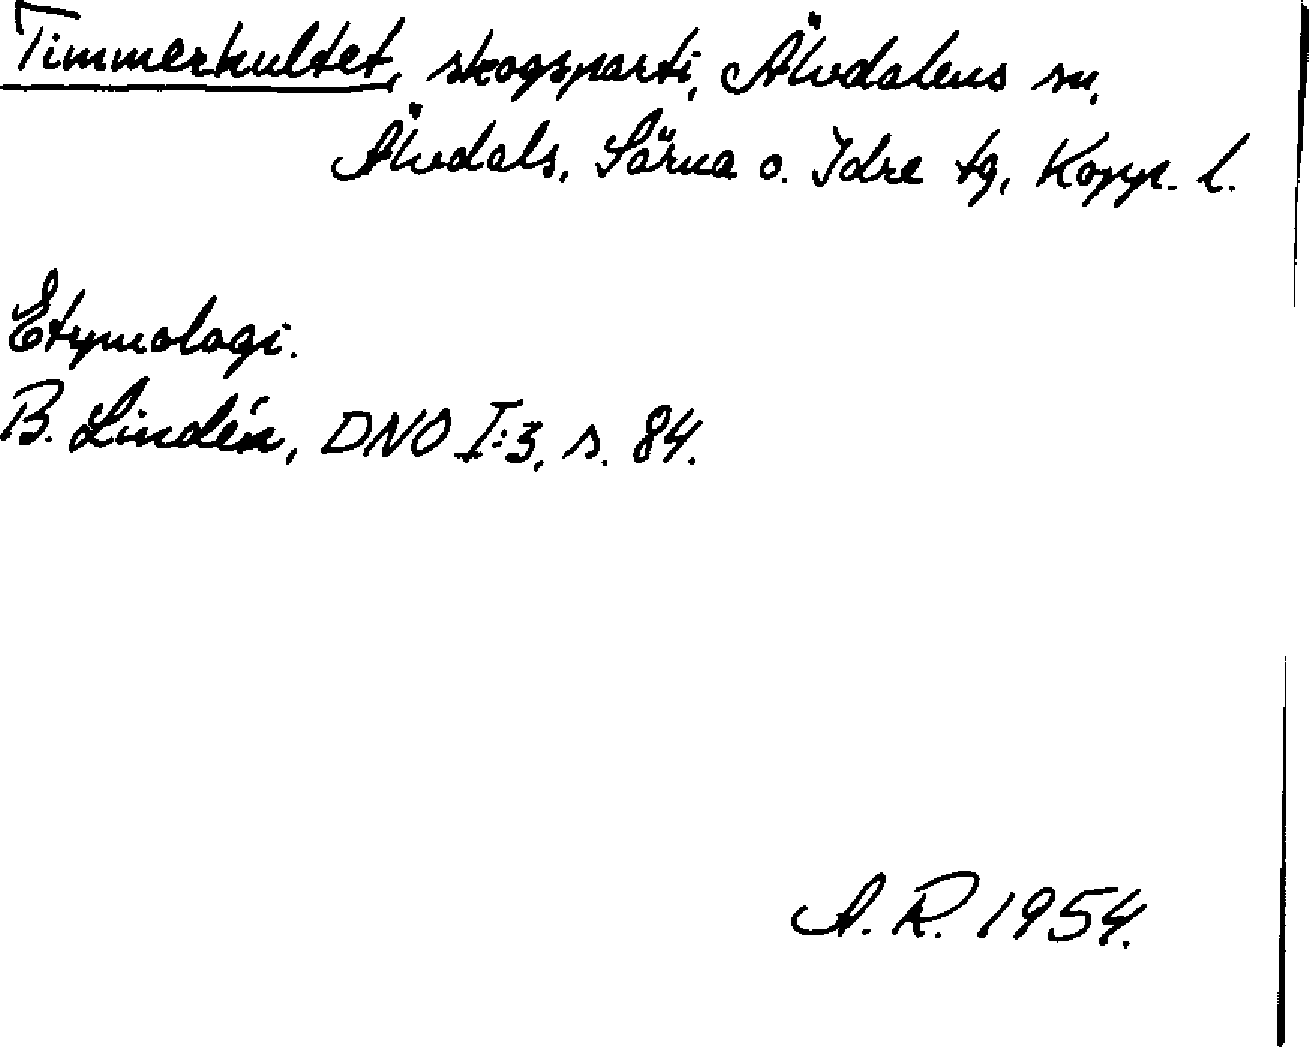 Timmerhultet, skogsparti, Älvdalens sn,
Älvdals, Särna o. Idre tg, Kopp. l.
Etymologi.
B. Lindén, DNO I:3, s. 84.
A. R. 1954.